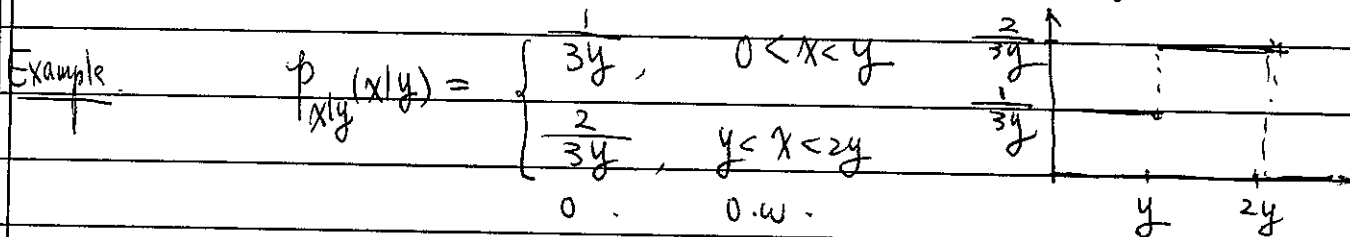 Example. p_{x|y}(x|y) = { 1/3y, 0 < x < y
2/3y, y < x < 2y
0. o.w.
2/3y
1/3y
y 2y